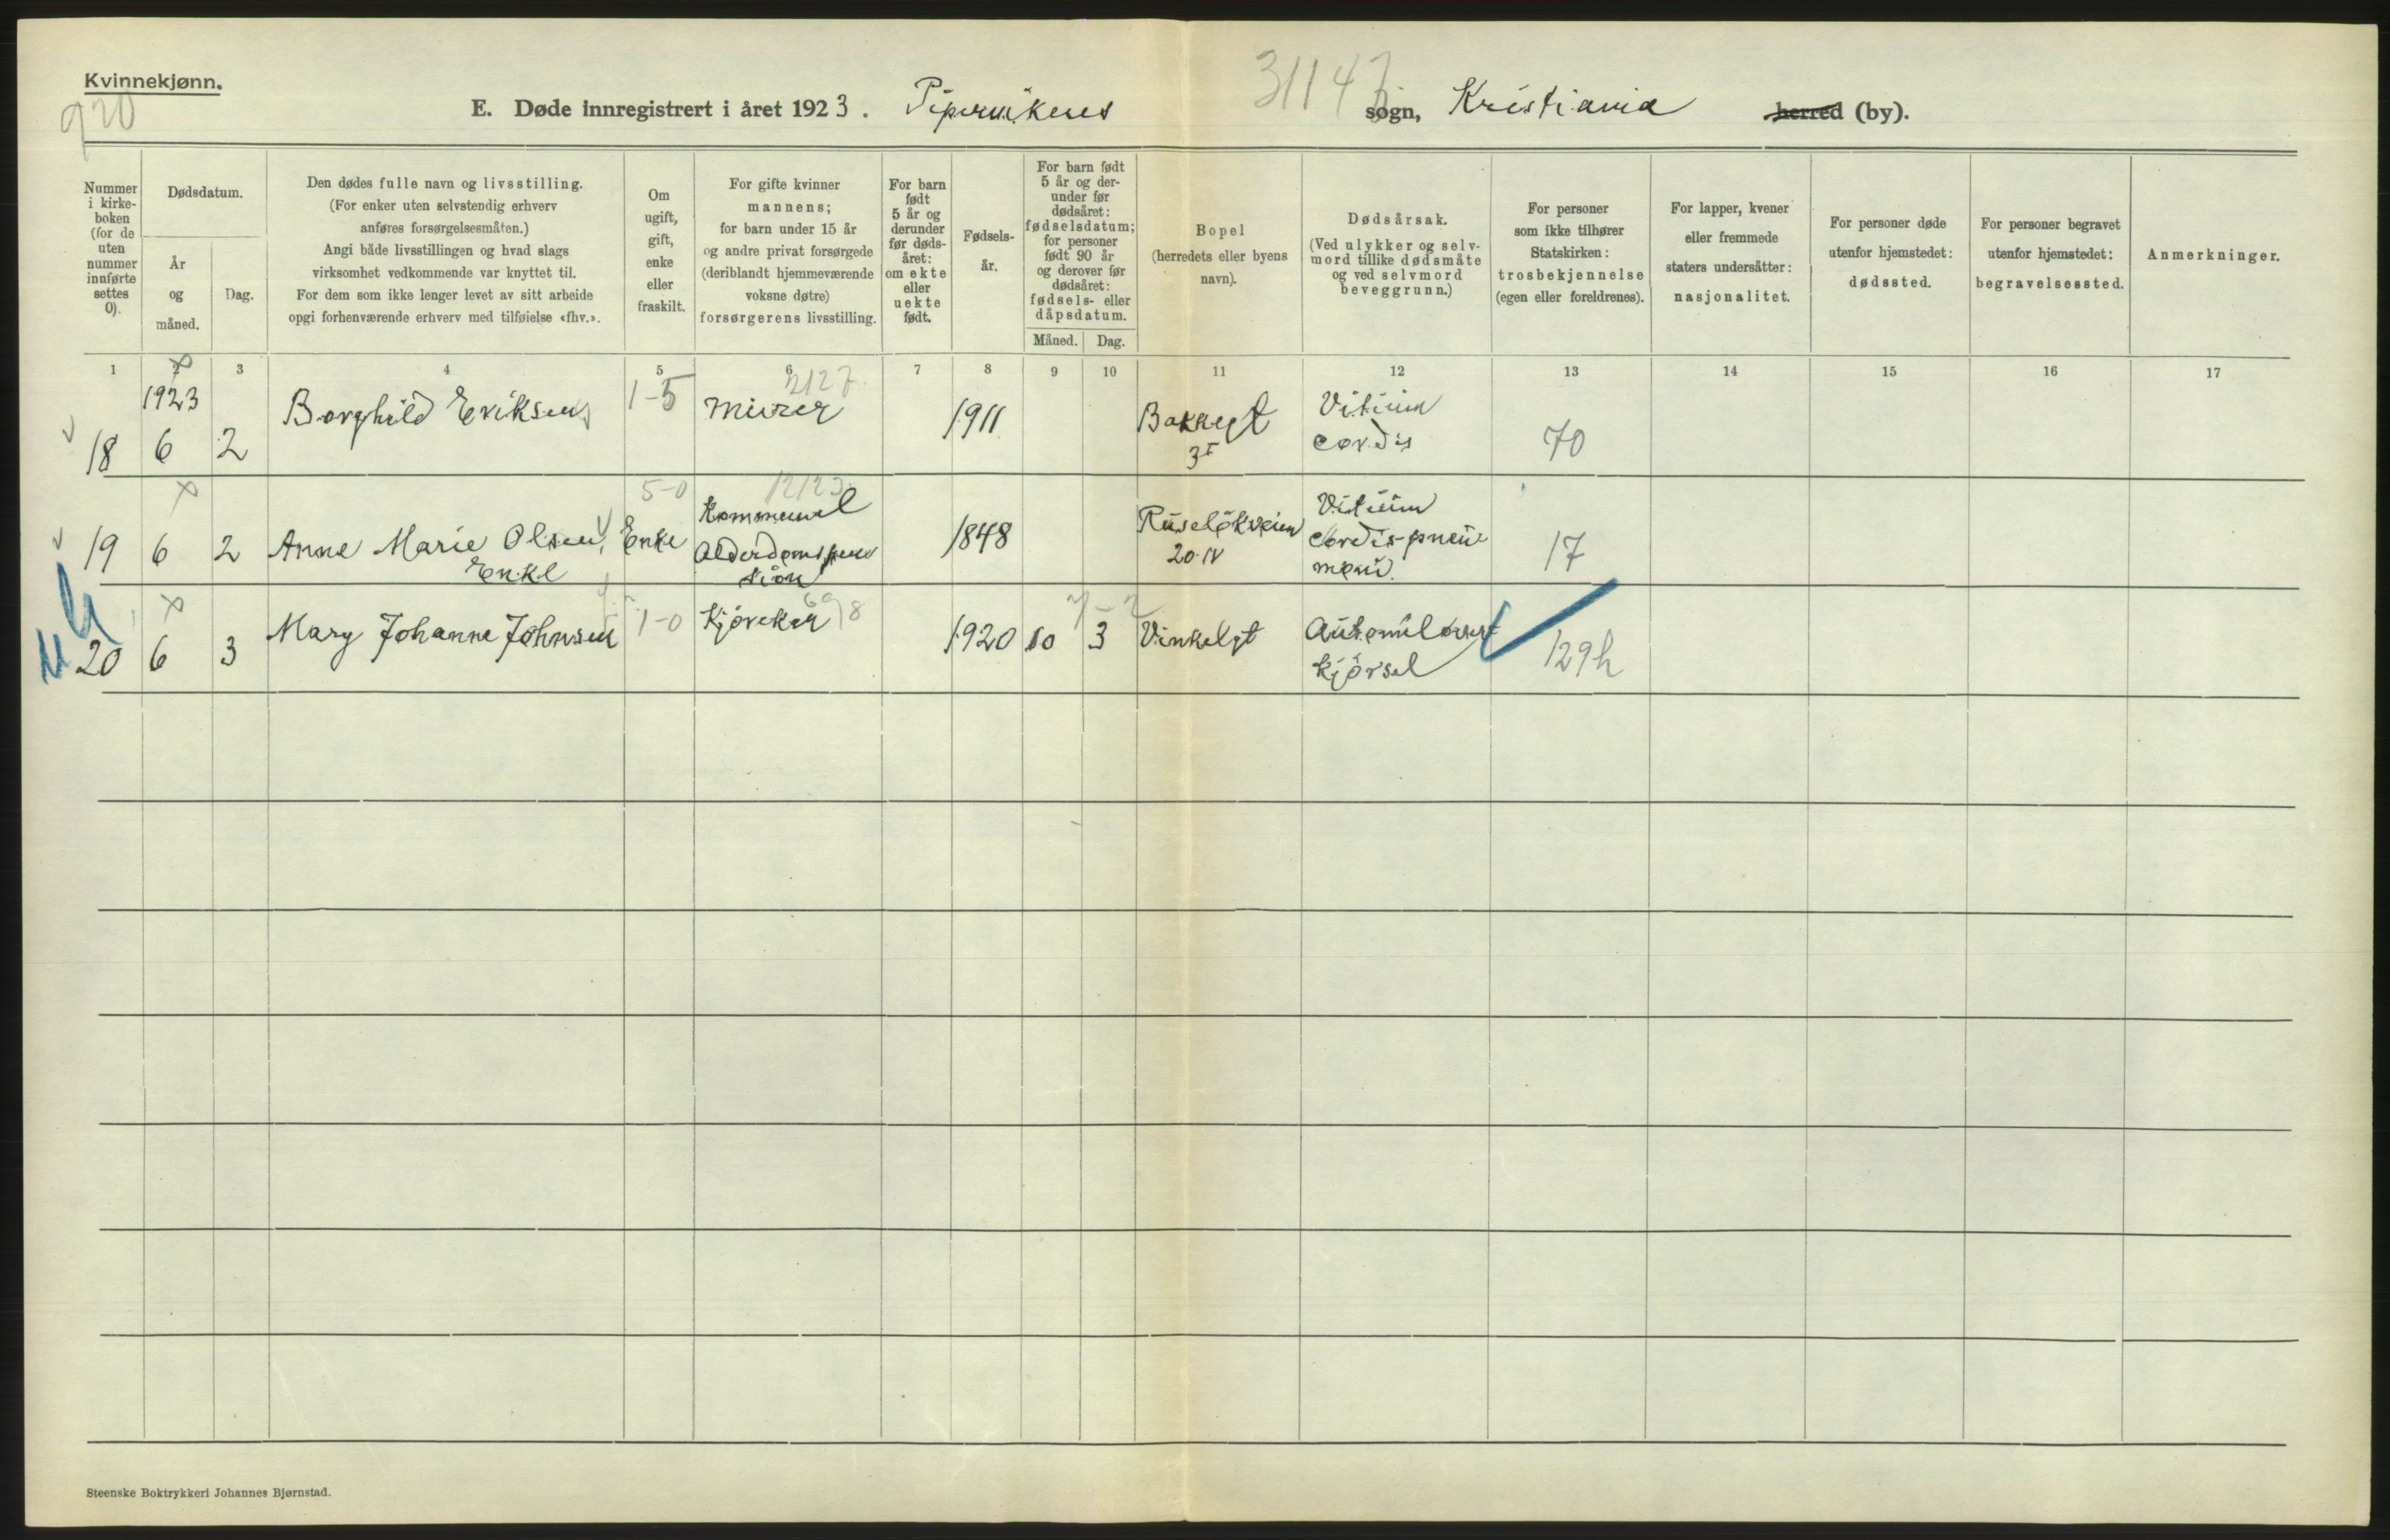 Kvinnekjønn.
920
E. Døde innregistrert i året 1923. Pipervikens sogn, Kristiania herred (by).
3114
Nummer i kirke-boken (for de uten nummer innførte settes 0).
Dødsdatum.
År og måned.
Dag.
Den dødes fulle navn og livsstilling.
(For enker uten selvstendig erhverv
anføres forsørgelsesmåten.)
Angi både livsstillingen og hvad slags
virksomhet vedkommende var knyttet til.
For dem som ikke lenger levet av sitt arbeide
opgi forhenværende erhverv med tilføielse «fhv.».
Om ugift, gift, enke eller fraskilt.
For gifte kvinner
mannens;
for barn under 15 år
og andre privat forsørgede
(deriblandt hjemmeværende
voksne døtre)
forsørgerens livsstilling.
For barn født 5 år og derunder før døds-året: om ekte eller uekte født.
Fødsels-år.
For barn født
5 år og der-
under før
dødsåret:
fødselsdatum;
for personer
født 90 år
og derover før
dødsåret:
fødsels- eller
dåpsdatum.
Måned. Dag.
Bopel
(herredets eller byens
navn).
Dødsårsak.
(Ved ulykker og selv-
mord tillike dødsmåte
og ved selvmord
beveggrunn.)
For personer
som ikke tilhører
Statskirken:
trosbekjennelse
(egen eller foreldrenes).
For lapper, kvener
eller fremmede
staters undersåtter:
nasjonalitet.
For personer døde
utenfor hjemstedet:
dødssted.
For personer begravet
utenfor hjemstedet:
begravelsessted.
Anmerkninger.
1 2 3 4 5 6 7 8 9 10 11 12 13 14 15 16 17
1923
18 6 2 Borghild Eriksen 1-5 2127 Murer 1911 Bakkegt 3 I Vitium cordis 70
19 6 2 Anne Marie Olsen, Enke 5-0 Enke 12123 Kommunal Alderdomspension 1848 Ruseløkveien 20 IV Vitium cordis-pneumoni. 17
20 6 3 Mary Johanne Johnsen 1-0 Kjørekar 1920 10 3 Vinkelgt Automilover kjørsel 129h
Steenske Boktrykkeri Johannes Bjørnstad.